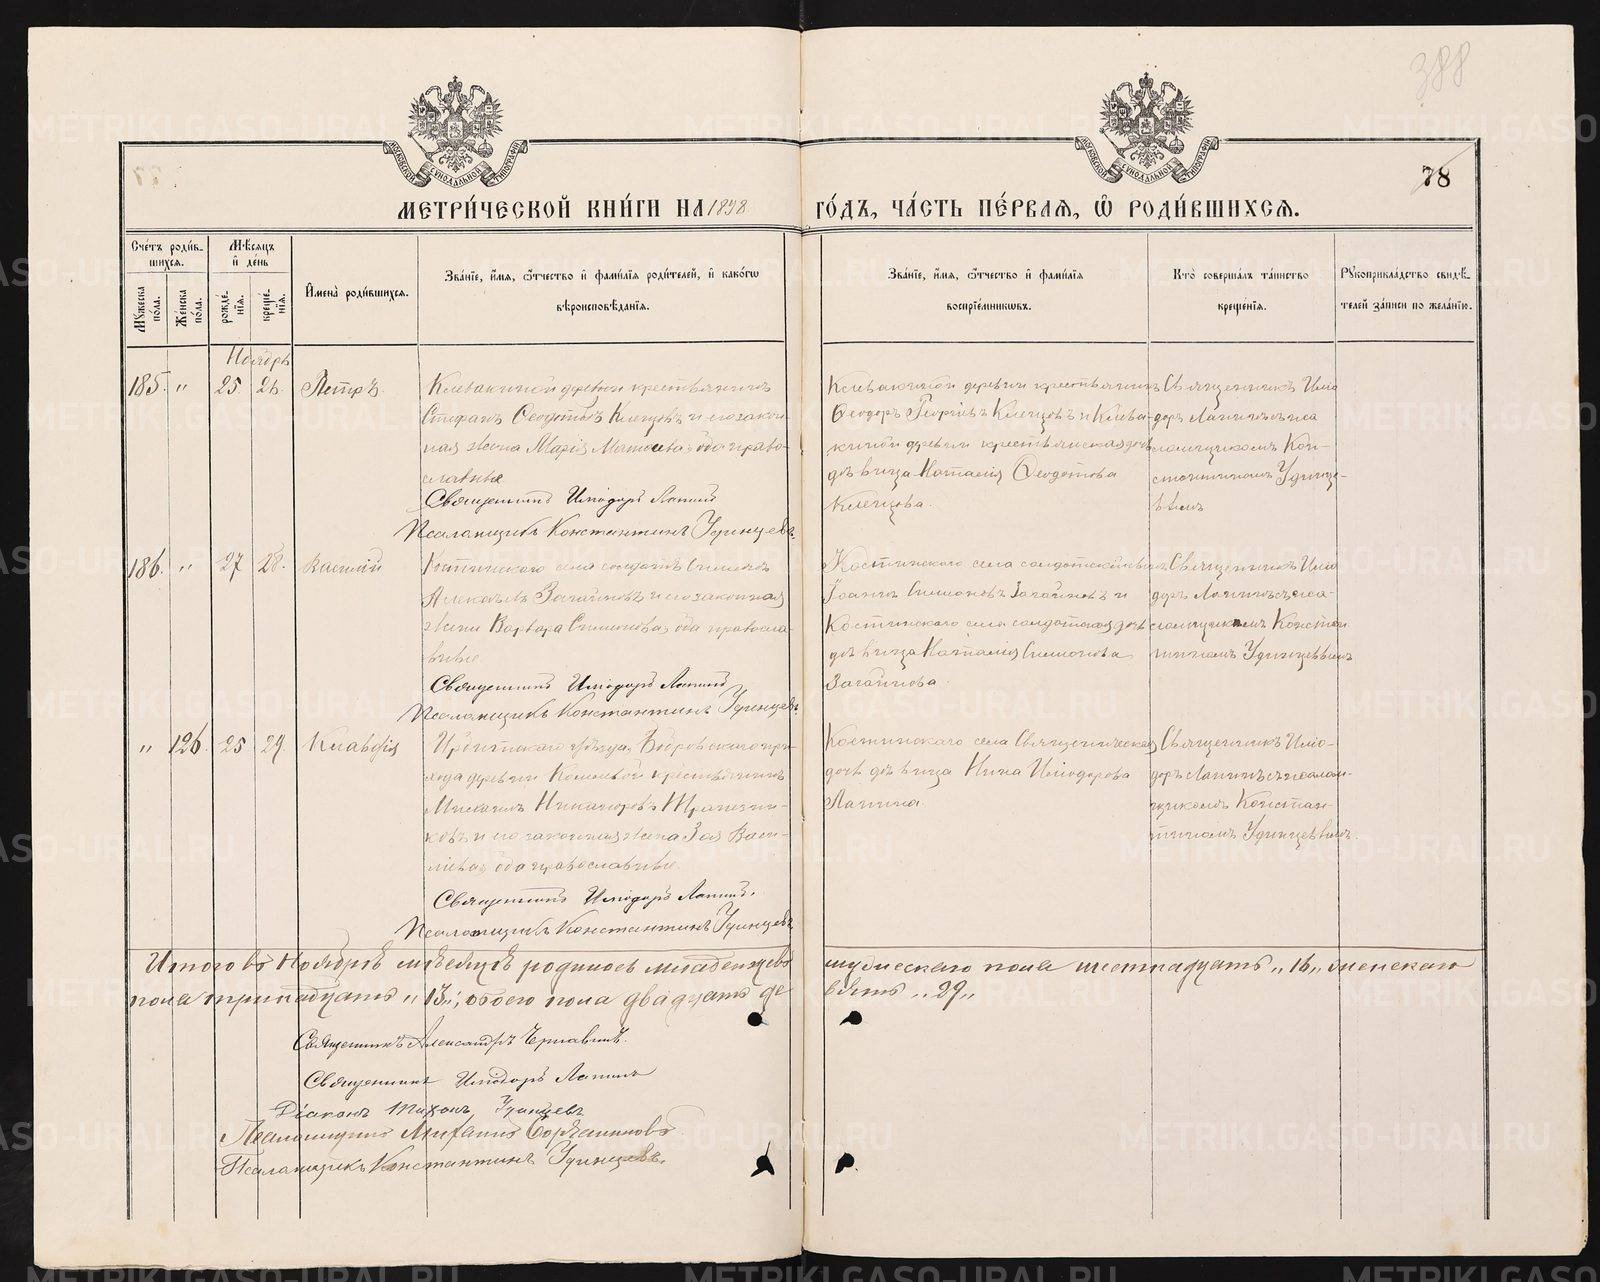 388
78
МОСКОВСКОЙ СѴНОДАЛЬНОЙ ТИПОГРАФІИ
МОСКОВСКОЙ СѴНОДАЛЬНОЙ ТИПОГРАФІИ
МЕТРИ́ЧЕСКОЙ КНИ́ГИ НА 1898 ГО́ДЪ, ЧА́СТЬ ПЕ́РВАЯ, Ѡ҆ РОДИ́ВШИХСЯ.
Сче́тъ роди́в-
шихся.
Мꙋ́жеска по́ла.
Же́нска по́ла.
Мѣ́сяцъ и҆ де́нь
рожде́-нїя.
креще́-нїя.
И҆мена̀ роди́вшихся.
Зва́нїе, и҆́мя, ѻ҆́тчество и҆ фами́лїя роди́телей, и҆ како́гѡ
вѣроисповѣ́данїя.
Зва́нїе, и҆́мя, ѻ҆́тчество и҆ фами́лїя
воспрїе́мникѡвъ.
Кто̀ соверша́лъ та́инство
креще́нїя.
Рꙋкоприкла́дство свидѣ́-
телей за́писи по жела́нїю.
Ноябрь
185. " 25. 26. Петръ.
Клевакиной деревни крестьянинъ
Стефанъ Ѳеодотовъ Клещевъ и его закон-
ная жена Марія Матѳеева, оба право-
славные
Священникъ Иліодоръ Лапинъ
Псаломщикъ Константинъ Удинцевъ.
Клевакиной деревни крестьянинъ
Ѳеодоръ Георгіевъ Клещевъ и Клева-
киной деревни крестьянская дочь
дѣвица Наталія Ѳеодотова
Клещева.
Священникъ Иліо-
доръ Лапинъ съ пса-
ломщикомъ Кон-
стантиномъ Удинце-
вымъ
186. " 27 28. Василій
Костинскаго села солдатъ Симеонъ
Алексѣевъ Загайновъ и его законная
жена Варвара Симеонова, оба правосла-
вные.
Священникъ Иліодоръ Лапинъ
Псаломщикъ Константинъ Удинцевъ.
Костинскаго села солдатскій сынъ
Іоаннъ Симеоновъ Загайновъ и
Костинскаго села солдатская дочь
дѣвица Наталія Симеонова
Загайнова.
Священникъ Иліо-
доръ Лапинъ съ пса-
ломщикомъ Констан
тиномъ Удинцевымъ
" 126. 25 29. Клавдія
Ирбитскаго уѣзда, Бобровскаго при-
хода деревни крестьянинъ
Михаилъ Никаноровъ
ковъ и его законная жена Зоя Васи-
ліева, оба православные.
Священникъ Иліодоръ Лапинъ.
Псаломщикъ Константинъ Удинцевъ
Костинскаго села Священническая
дочь дѣвица Нина Иліодорова
Лапина.
Священникъ Иліо-
доръ Лапинъ съ псалом-
щикомъ Констан-
тиномъ Удинцевымъ.
Итого въ Ноябрѣ мѣсяцѣ родилось младенцевъ мужескаго пола шестнадцать „16„ женскаго
пола тринадцать „13„; обоего пола двадцать де вять „29„
Священникъ Александръ Чернавинъ.
Священникъ Иліодоръ Лапинъ
Діаконъ Тихонъ Удинцевъ
Псаломщикъ Михаилъ
Псаломщикъ Константинъ Удинцевъ.
METRIKI.GASO-URAL.RU